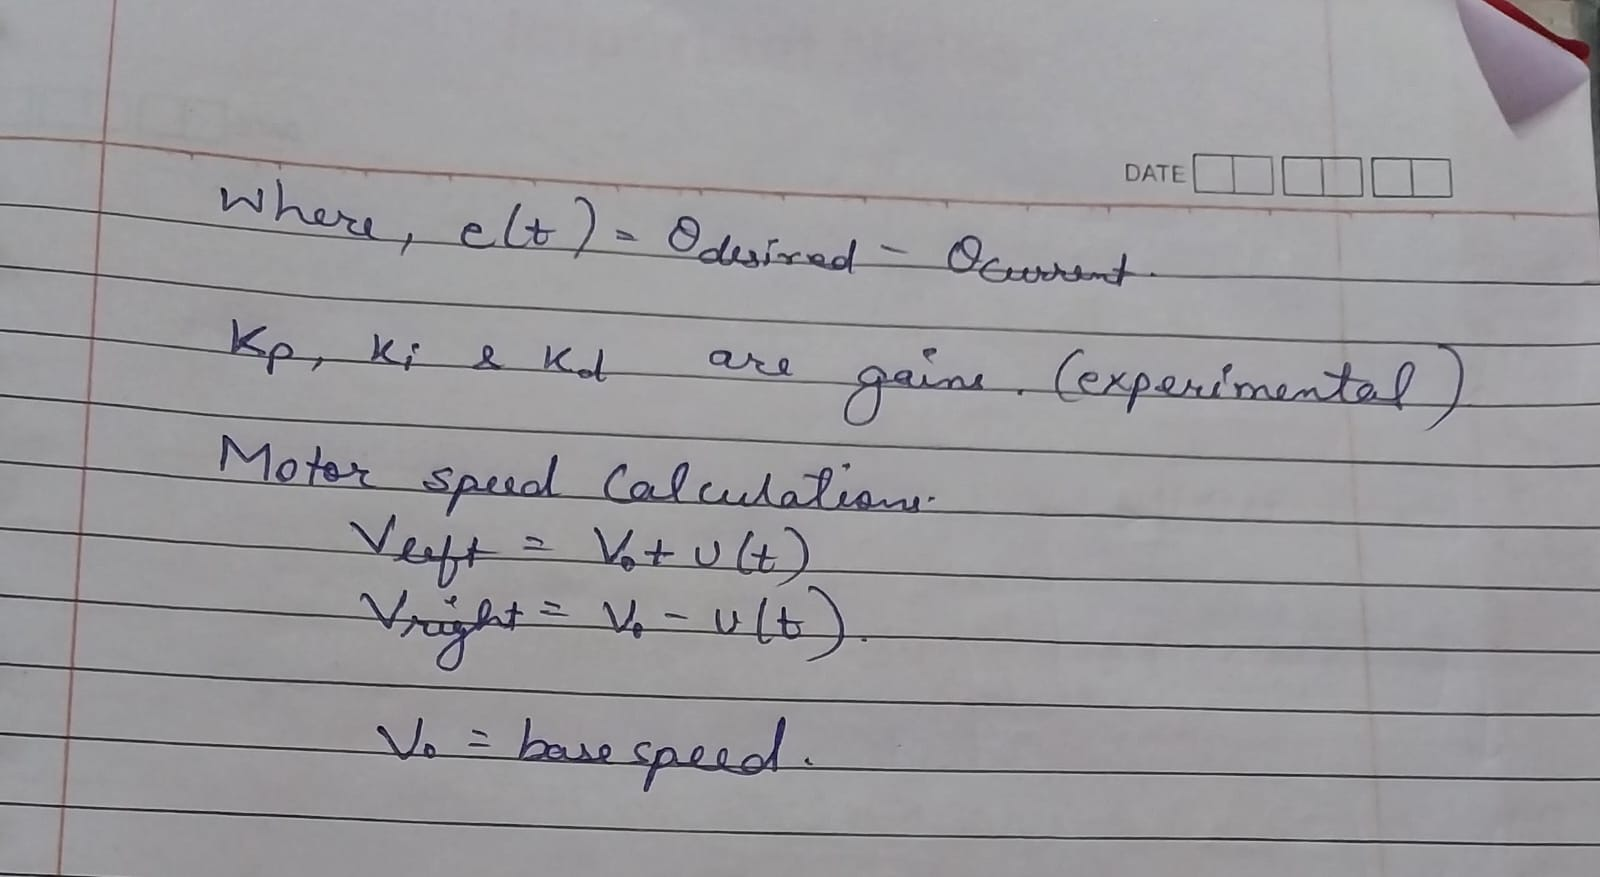 DATE
Where, e(t) = θdesired - θcurrent.
Kp, Ki & Kd are gains. (experimental)
Motor speed Calculations.
Vleft = V₀ + U(t)
Vright = V₀ - U(t).
V₀ = base speed.